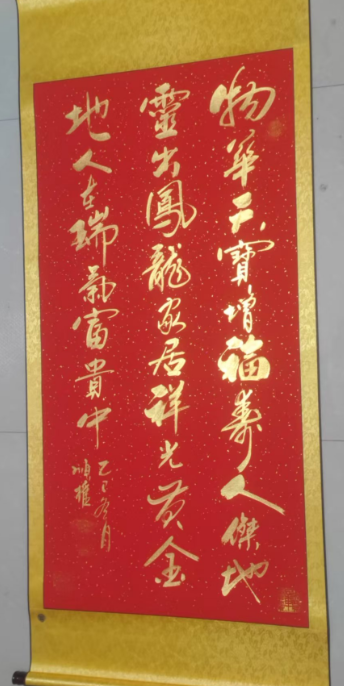 物華天寶增福壽人傑地
靈出鳳龍家居祥光黃金
地人在瑞氣富貴中
乙巳冬月